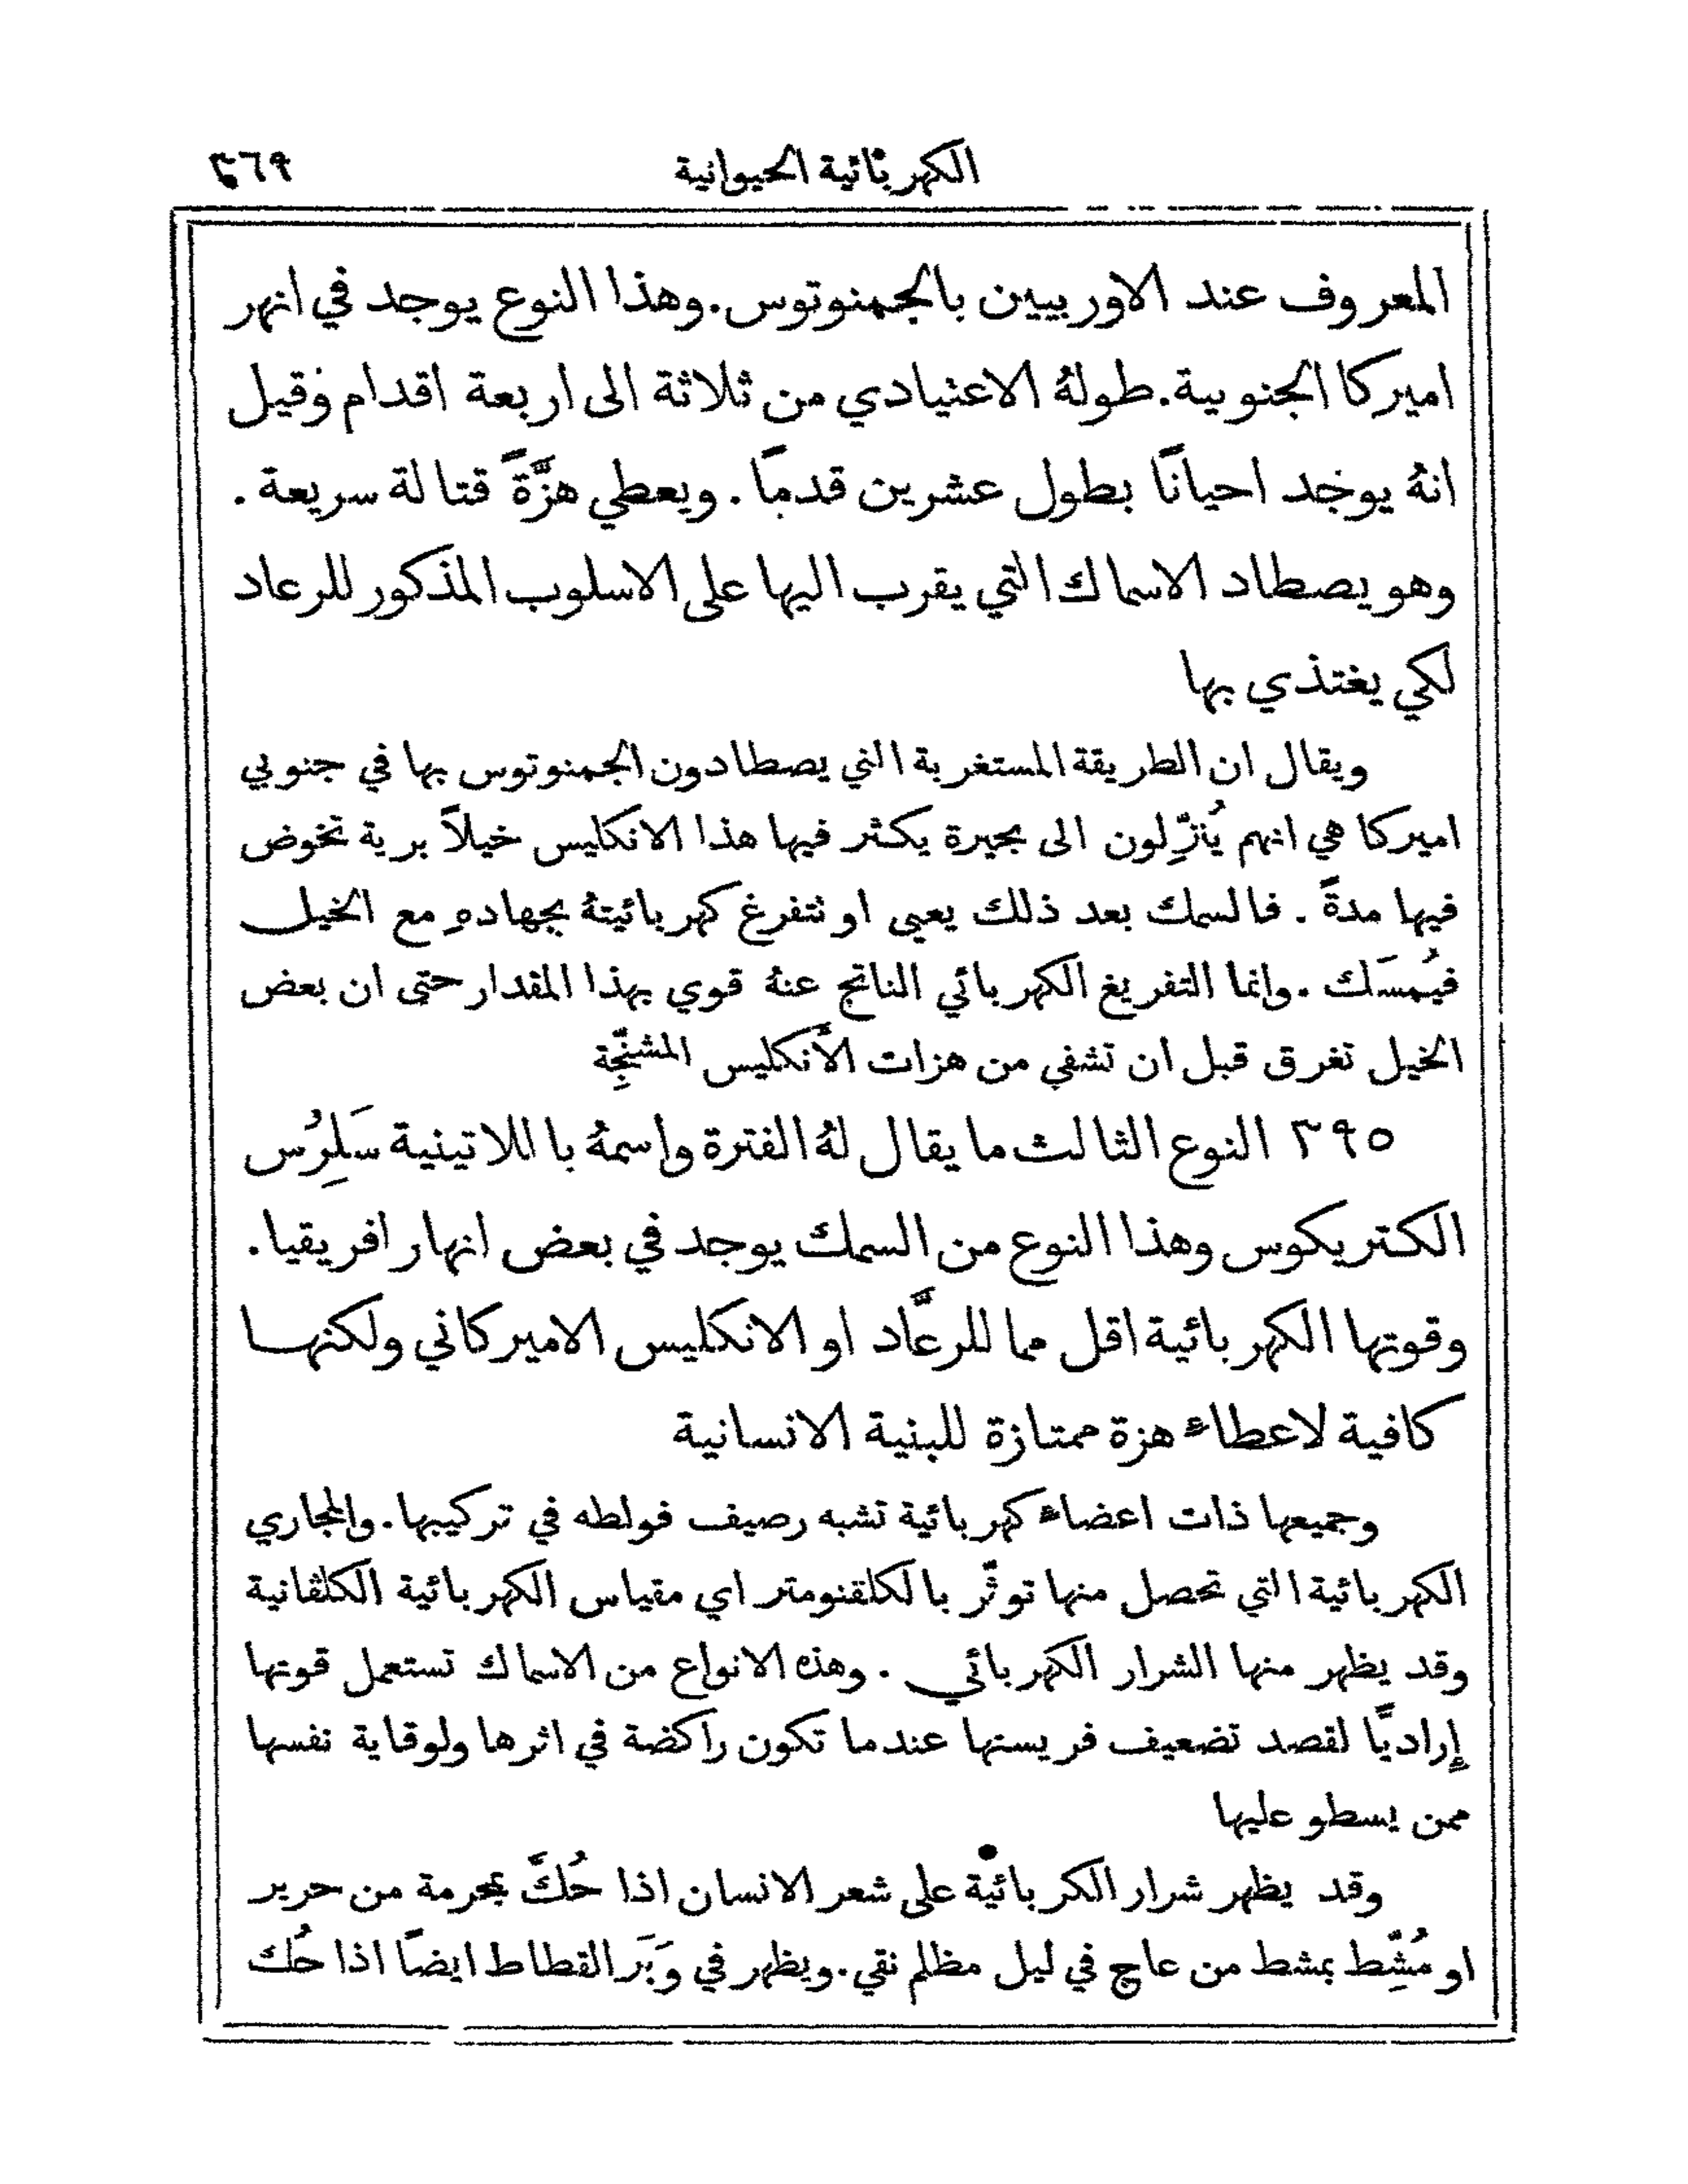 الكهربائية الحيوانية ٣٦٩
المعروف عند الاوربيين بالجمنوتوس. وهذا النوع يوجد في انهر
اميركا الجنوبية. طولهُ الاعتيادي من ثلاثة الى اربعة اقدام وقيل
انهُ يوجد احيانًا بطول عشرين قدمًا. ويعطي هزَّةً قتالة سريعة.
وهو يصطاد الاسماك التي يقرب اليها على الاسلوب المذكور للرعاد
لكي يغتذي بها
ويقال ان الطريقة المستغربة التي يصطادون الجمنوتوس بها في جنوبي
اميركا هي انهم يُنزِّلون الى بحيرة يكثر فيها هذا الانكليس خيلاً برية تخوض
فيها مدةً. فالسمك بعد ذلك يعيى او نتفرغ كهربائيتهُ بجهادهِ مع الخيل
فيُمسَك. وانما التفريغ الكهربائي الناتج عنهُ قوي بهذا المقدار حتى ان بعض
الخيل تغرق قبل ان تشفي من هزات الأنكليس المشنِّجة
٣٩٥ النوع الثالث ما يقال لهُ الفترة واسمهُ باللاتينية سَلِرُس
الكتريكوس وهذا النوع من السمك يوجد في بعض انهار افريقيا.
وقوتها الكهربائية اقل مما للرعَّاد او الانكليس الاميركاني ولكنها
كافية لاعطاء هزة ممتازة للبنية الانسانية
وجميعها ذات اعضاء كهربائية تشبه رصيف فولطه في تركيبها. والمجاري
الكهربائية التي تحصل منها توثّر بالكلڤنومتر اي مقياس الكهربائية الكلڤانية
وقد يظهر منها الشرار الكهربائي. وهذه الانواع من الاسماك تستعمل قوتها
إراديًّا لقصد تضعيف فريستها عندما تكون راكضة في اثرها ولوقاية نفسها
ممن يسطو عليها
وقد يظهر شرار الكربائية على شعر الانسان اذا حُكَّ بمحرمة من حرير
او مُشِّط بمشط من عاج في ليل مظلم نقي. ويظهر في وَبَر القطاط ايضًا اذا حُك